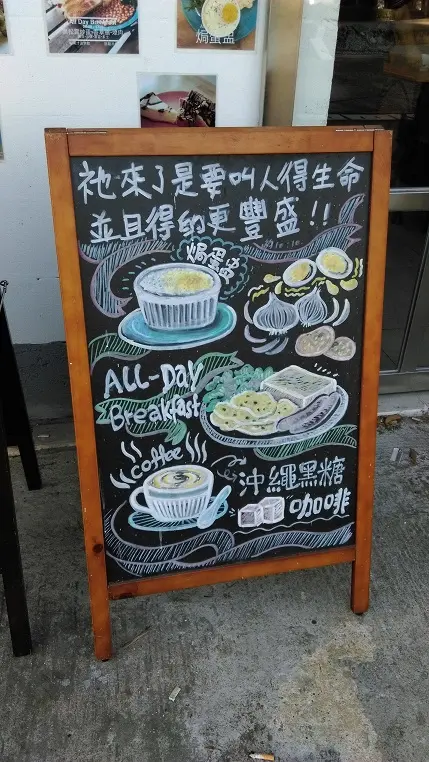 All Day Breakfast
焗蛋盅
祂來了是要叫人得生命
並且得的更豐盛!!
焗蛋盅
ALL-DAY
Breakfast
coffee
沖繩黑糖
咖啡